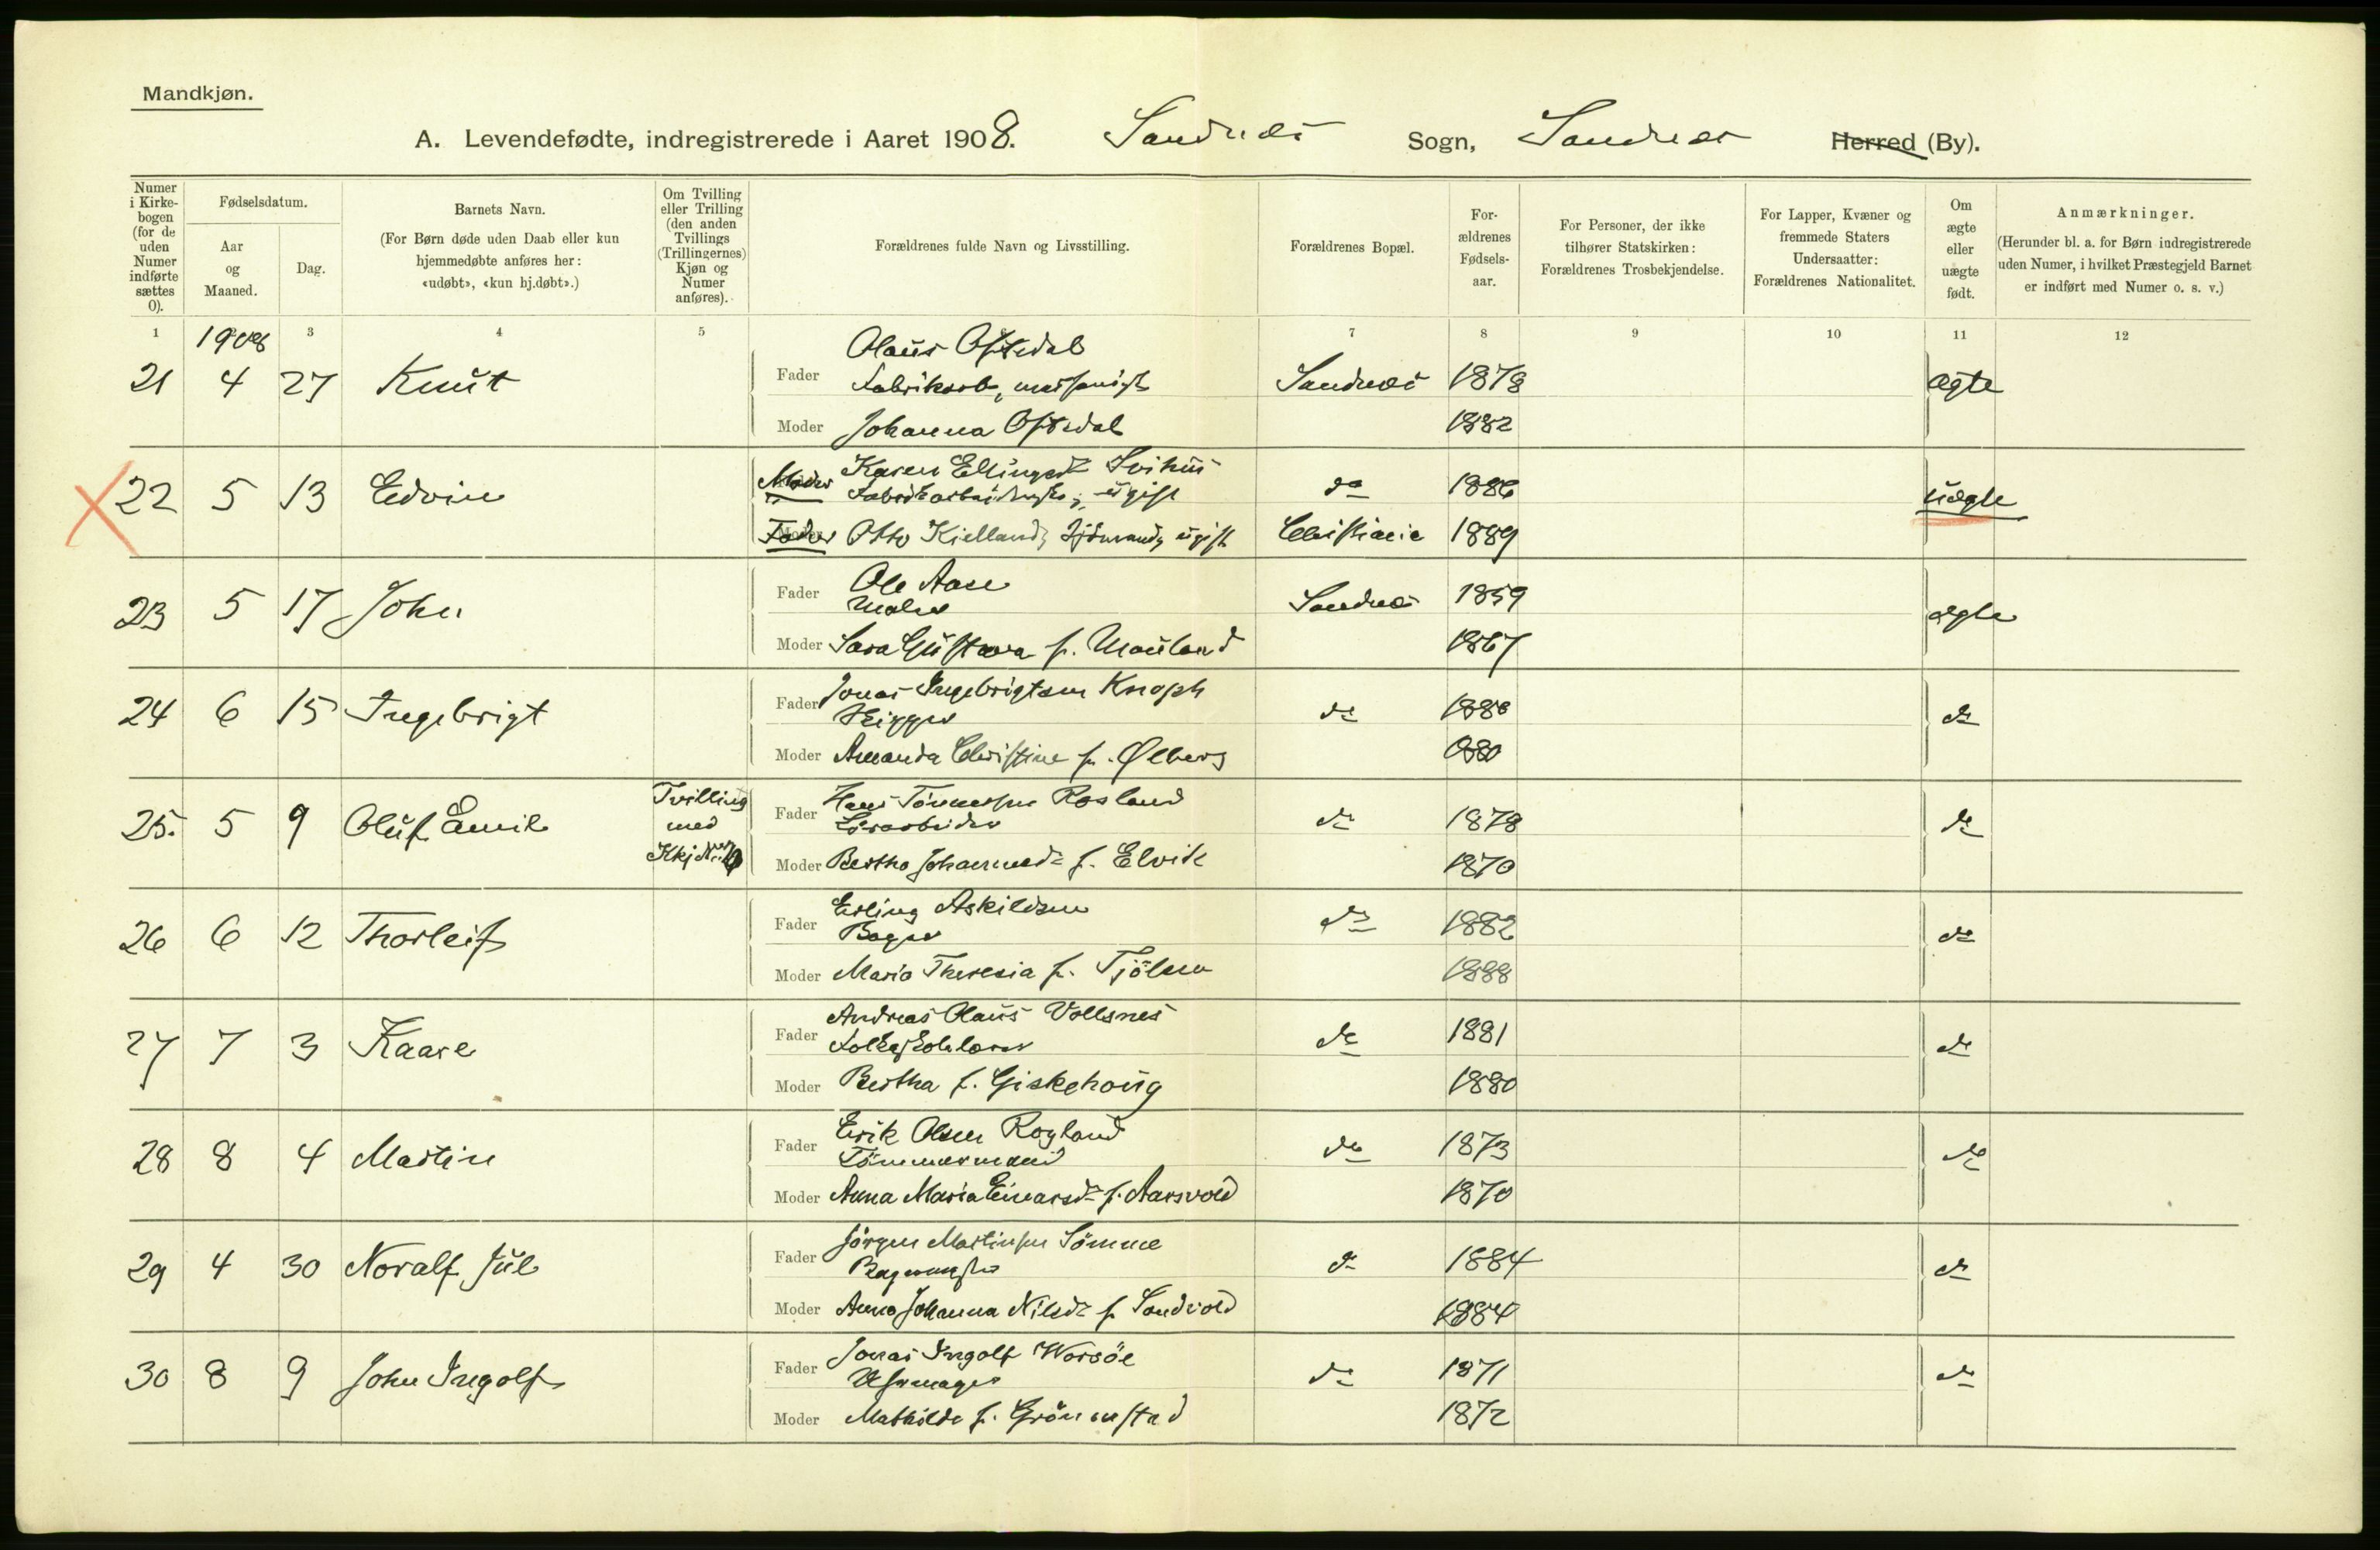 Mandkjøn.
A. Levendefødte, indregistrerede i Aaret 1908. Sandnæs Sogn, Sandnæs Herred (By).
Numer i Kirkebogen (for de uden Numer indførte sættes 0).
Fødselsdatum.
Aar og Maaned.
Dag.
Barnets Navn.
(For Børn døde uden Daab eller kun hjemmedøbte anføres her: «udøbt», «kun hj.døbt».)
Om Tvilling eller Trilling (den anden Tvillings (Trillingernes) Kjøn og Numer anføres).
Forældrenes fulde Navn og Livsstilling.
Forældrenes Bopæl.
Forældrenes Fødselsaar.
For Personer, der ikke tilhører Statskirken: Forældrenes Trosbekjendelse.
For Lapper, Kvæner og fremmede Staters Undersaatter: Forældrenes Nationalitet.
Om ægte eller uægte født.
Anmærkninger.
(Herunder bl. a. for Børn indregistrerede uden Numer, i hvilket Præstegjeld Barnet er indført med Numer o. s. v.)
1 1908 3 4 5 7 8 9 10 11 12
Olaus Oftedal
21 4 27 Knut Fader Fabrikarb, Sandnæs 1878 ægte
Moder Johanna Oftedal 1882
Moder Karen Ellingsdr Svihus
22 5 13 Edvin Fabrikarbeiderske, ugift do 1886 uægte
Fader Otto Kielland, Sjömand, ugift Christiania 1889
Fader Ole Aase
23 5 17 John Maler Sandnæs 1859 ægte
Moder Sara Gustava f. Mauland 1867
Fader Jonas Ingebrigtsen Knoph
24 6 15 Ingebrigt Skipper do 1880 do
Moder Amanda Christine f. Ølberg 1880
Tvilling Fader Hans Tönnesen Rosland
25. 5 9 Oluf Emil med do 1878 do
Kkj Nr Moder Bertha Johannesdr f. Elvik 1870
Fader Erling Askildsen
26 6 12 Thorleif Bager do 1882 do
Moder Maria Theresia f. Tjölsen 1888
Fader Andreas Olaus Vollsnes
27 7 3 Kaare Folkeskolelærer do 1881 do
Moder Bertha f. Giskehaug 1880
Fader Erik Olsen Rogland
28 8 4 Martin Tömmermand do 1873 do
Moder Anna Maria Einarsdr f. Aarsvold 1870
Fader Jörgen Martinsen Sömme
29 4 30 Noralf Jul Bagermester do 1884 do
Moder Anna Johanna Nilsdr f. Sandvold 1884
Fader Jonas Ingolf Worsöe
30 8 9 John Ingolf Uhrmager do 1871 do
Moder Mathilde f. Grönnestad 1872